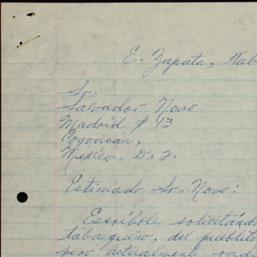 E. Zapata, Tab
Sr.
Salvador Novo
Madrid # 13
Coyoacan,
Mexico, D. F.
Estimado Sr. Novo:
Escríbole solicitándo
tabasqueño, del pueblito
pero actualmente radi